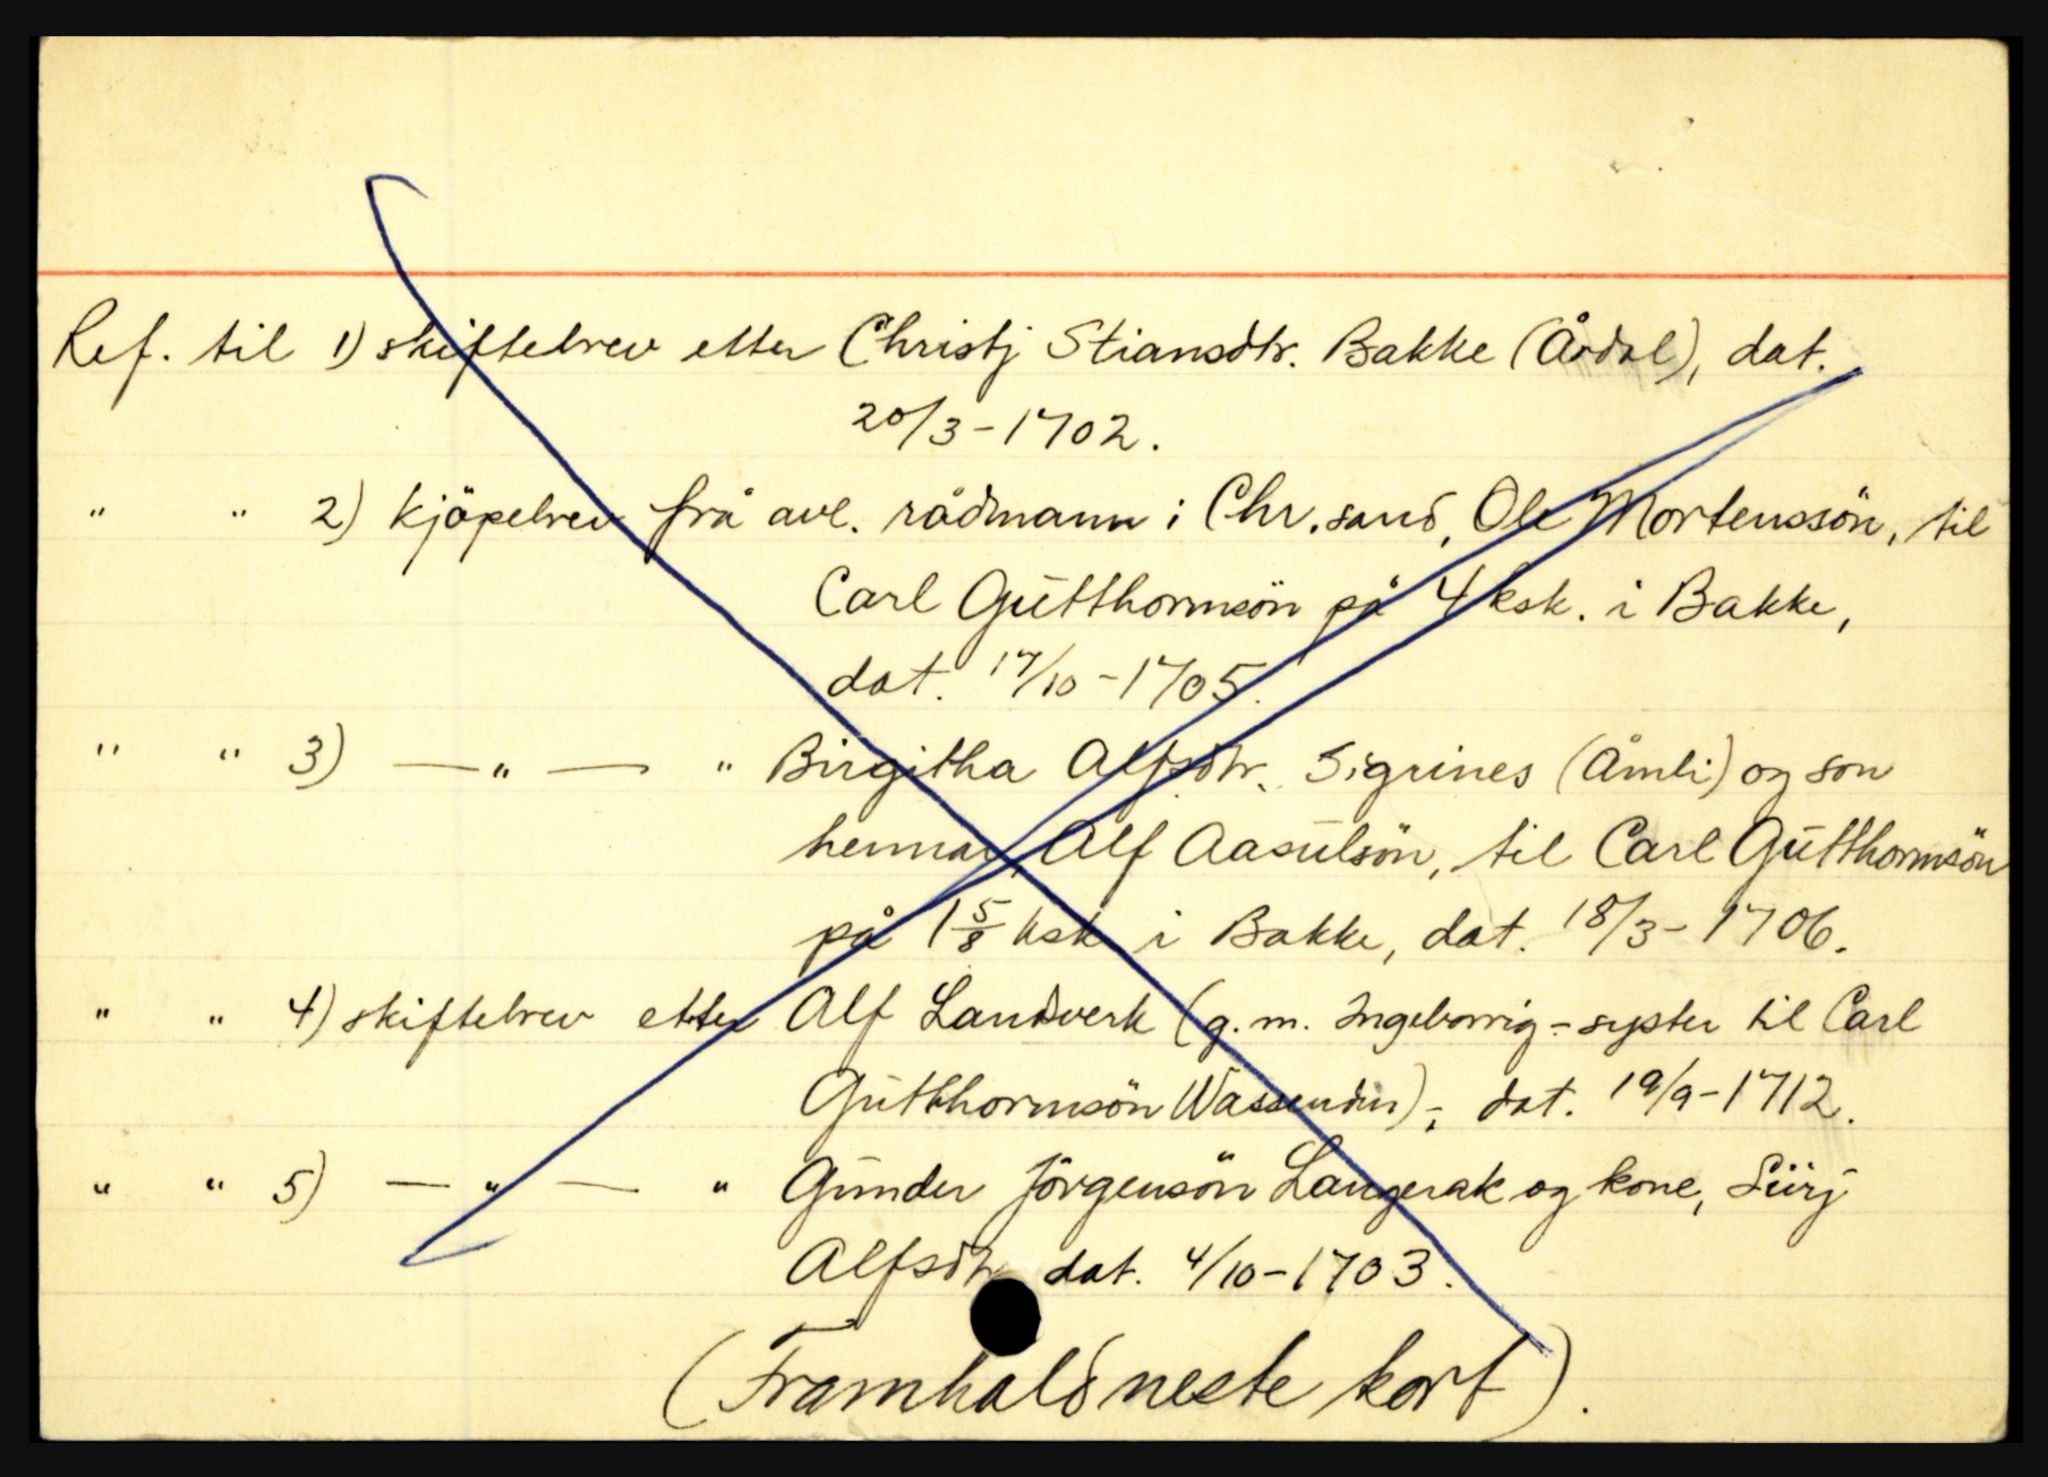 Ref. til 1) skiftebrev etter Christj Stiansdtr. Bakke (Årdal), dat.
20/3-1702.
" " 2) kjöpebrev frå avl. rådmann i Chr.sand, Ole Mortenssön, til
Carl Gŭtthormsön på 4 ksk. i Bakke,
dat. 17/10-1705.
" " 3) — " — " Birgitha Alfsdtr. Sigrines (Åmli) og son
hennar, Alf Aasŭlsön, til Carl Gŭtthormsön
på 1 5/8 ksk i Bakke, dat. 18/3-1706.
" " 4) skiftebrev etter Alf Landverk (g.m. Ingeborrig - syster til Carl
Gŭtthormsön Wassenden)-, dat. 19/9-1712.
" " 5) — " — " Gŭnder Jörgensön Langerak og kone, Siirj
Alfsdtr dat. 4/10-1703.
(Framhald neste kort).